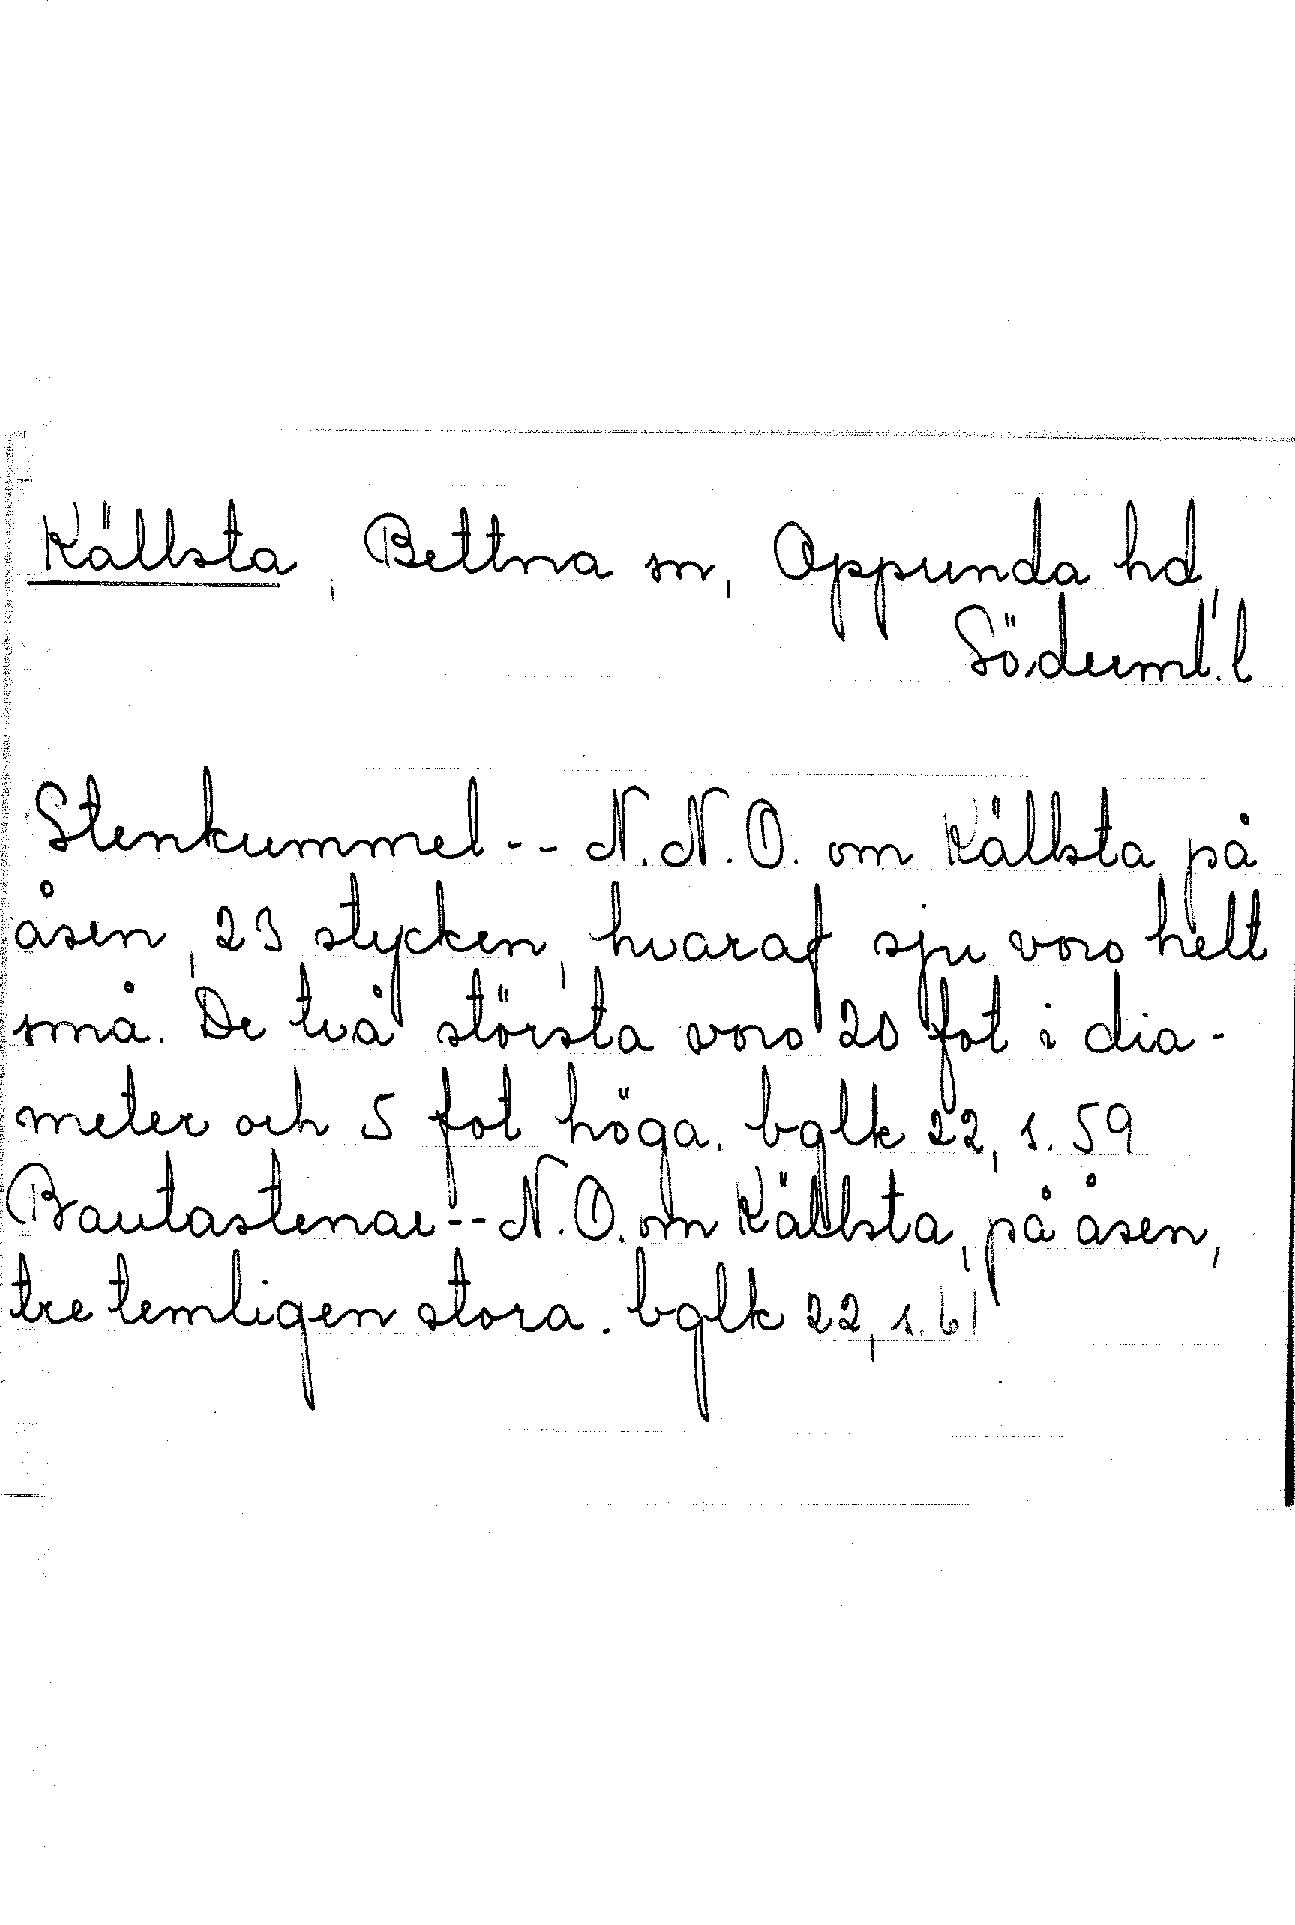 Källsta, Bettna sn, Oppunda hd,
Söderml. l
Stenkummel -- N.N.O. om Källsta på
åsen, 23 stycken, hvaraf sju voro helt
små. De två största voro 20 fot i dia-
meter och 5 fot höga. bglk 22, s. 59
Bautastenar -- N.O. om Källsta, på åsen,
tre temligen stora. bglk 22, s. 61